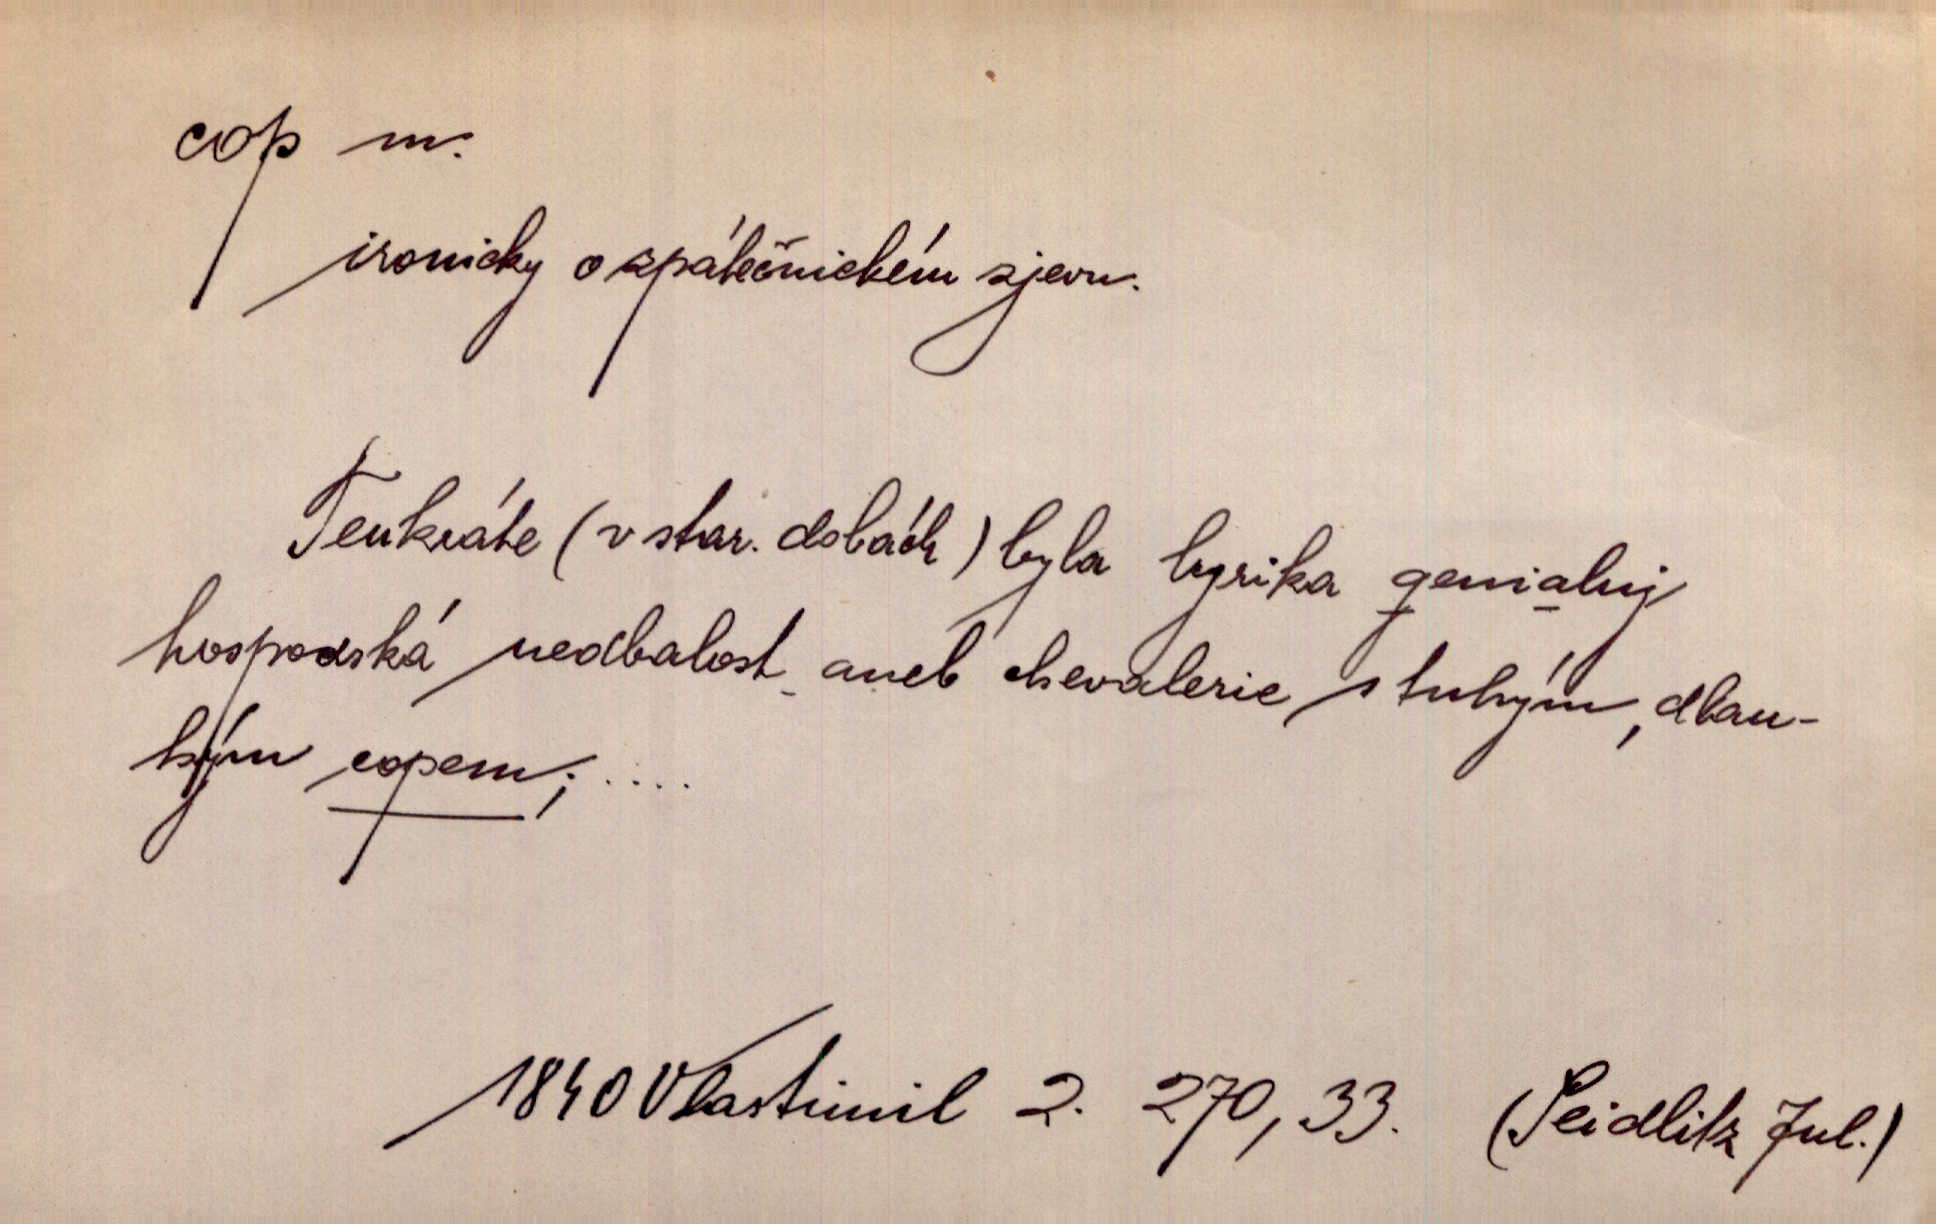 cop m.
ironicky o zpátečnickém zjevu.
Tenkráte (v star. dobách) byla lyrika genialnj
hospodská nedbalost aneb chevalerie s tuhým, dlau-
hým copem; ....
1840 Vlastimil 2. 270, 33. (Seidlitz Jul.)